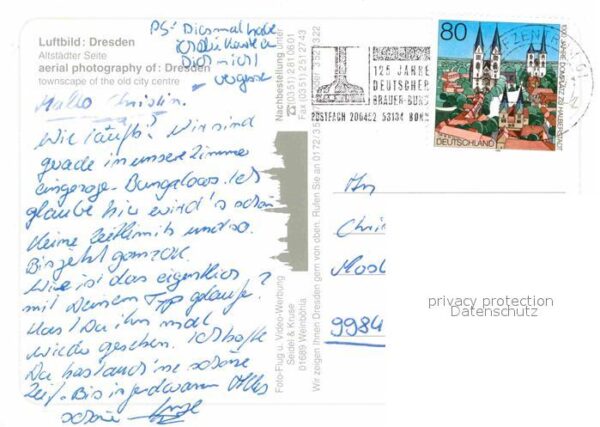 Luftbild: Dresden
Altstädter Seite
aerial photography of: Dresden
townscape of the old city centre
PS: Diesmal habe
ich die Karte
Dich nicht
Hallo Christin.
Wie läuft's? Wir sind
gerade in unsere Zimmer
Bungalows. Ich
glaube hier wird's schön
keine und so.
Bis jetzt ganz ok.
Wie ist das eigentlich
mit Deinem Typ gelaufe?
Hast Du ihn mal
wieder gesehen. Ich hoffe
Du hast auch ne schöne
Zeit. Bis irgendwann Alles
schöne
Nachbestellung unter
(0351) 2 81 06 01
Fax (0351) 251 27 43
Foto-Flug u. Video-Werbung
Seidel & Kruse
01689 Weinböhla
Wir zeigen Ihnen Dresden gern von oben. Rufen Sie an 0172/35
125 JAHRE
DEUTSCHER
BRAUER-BUND
POSTFACH 200452 53134 BONN
80
DEUTSCHLAND
1000 JAHRE DOMPLATZ ZU HALBERSTADT
An
Chri
Mos
9984
privacy protection
Datenschutz